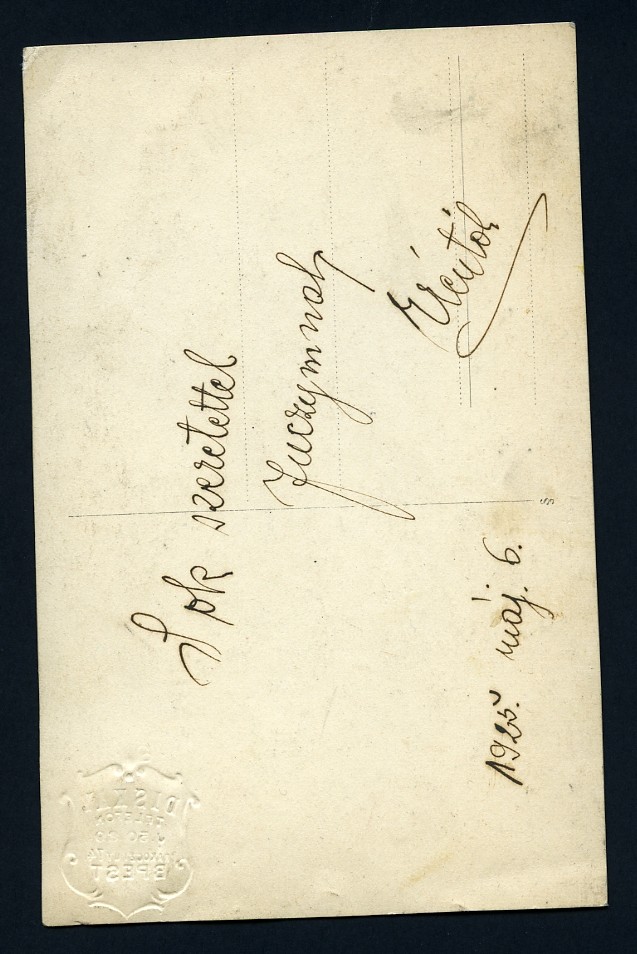 Sok szeretettel
Juczymnak
1925. máj. 6.
DISKAY
TELEFON
BPEST